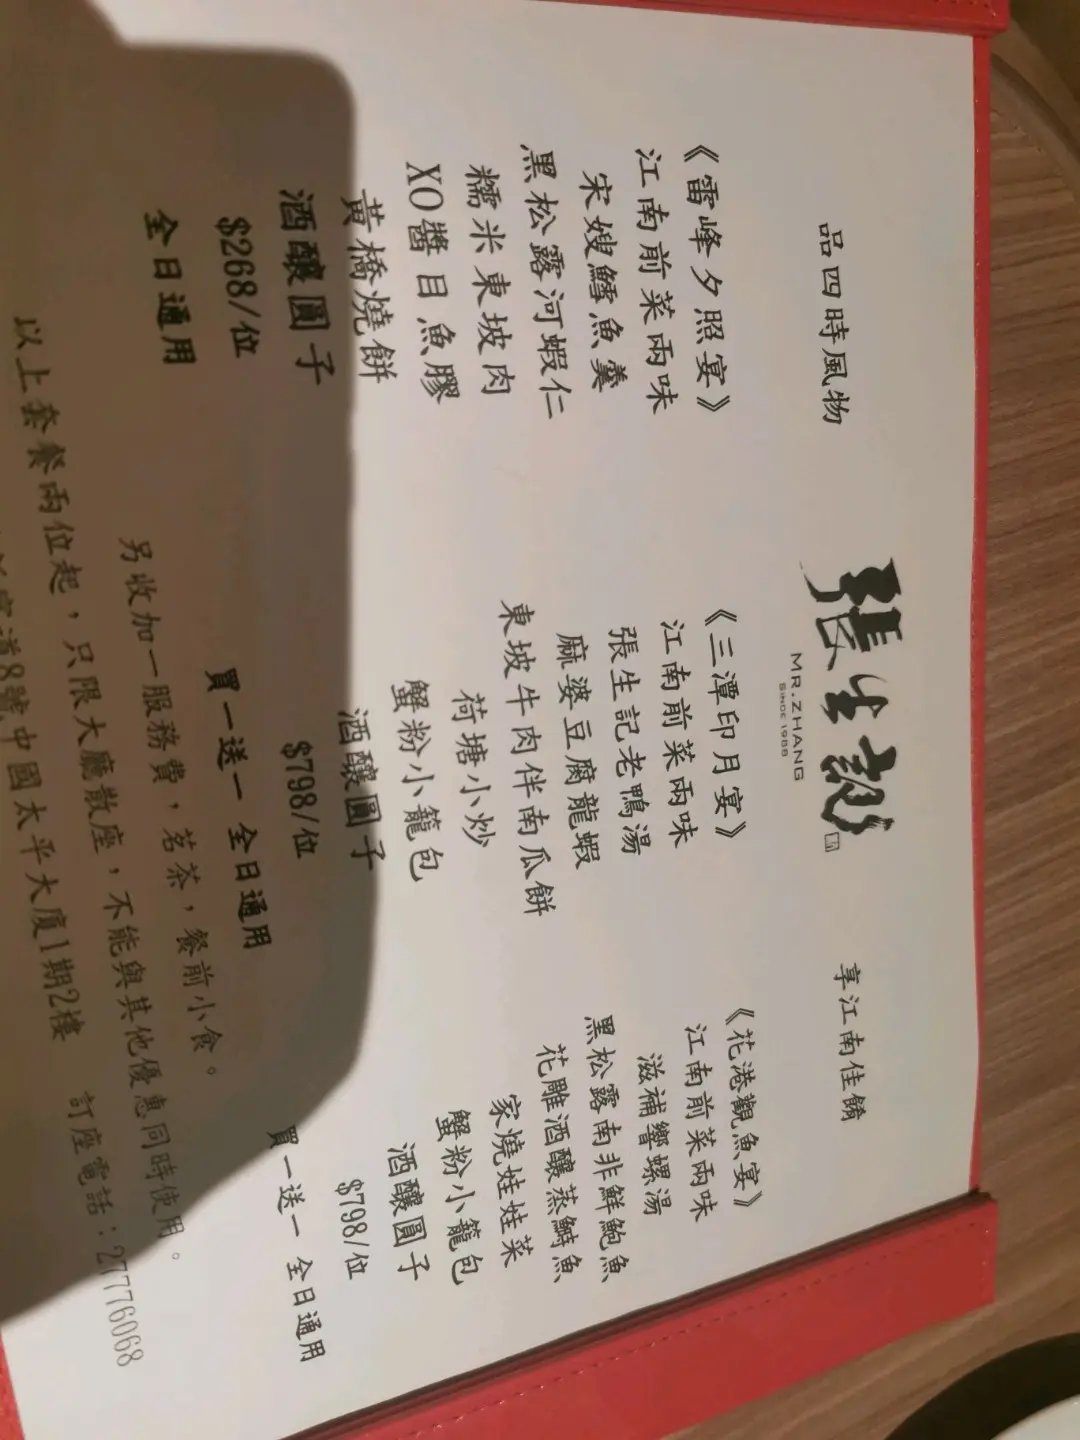 張生記
MR.ZHANG
SINCE 1988
品四時風物
享江南佳餚
《雷峰夕照宴》
江南前菜兩味
宋嫂鱈魚羹
黑松露河蝦仁
糯米東坡肉
XO醬目魚膠
黃橋燒餅
酒釀圓子
$268/位
全日通用
《三潭印月宴》
江南前菜兩味
張生記老鴨湯
麻婆豆腐龍蝦
東坡牛肉伴南瓜餅
荷塘小炒
蟹粉小籠包
酒釀圓子
$798/位
買一送一 全日通用
《花港觀魚宴》
江南前菜兩味
滋補響螺湯
黑松露南非鮮鮑魚
花雕酒釀蒸鰣魚
家燒娃娃菜
蟹粉小籠包
酒釀圓子
$798/位
買一送一 全日通用
另收加一服務費，茗茶，餐前小食。
以上套餐兩位起，只限大廳散座，不能與其他優惠同時使用。
道8號中國太平大廈1期2樓 訂座電話：27776068